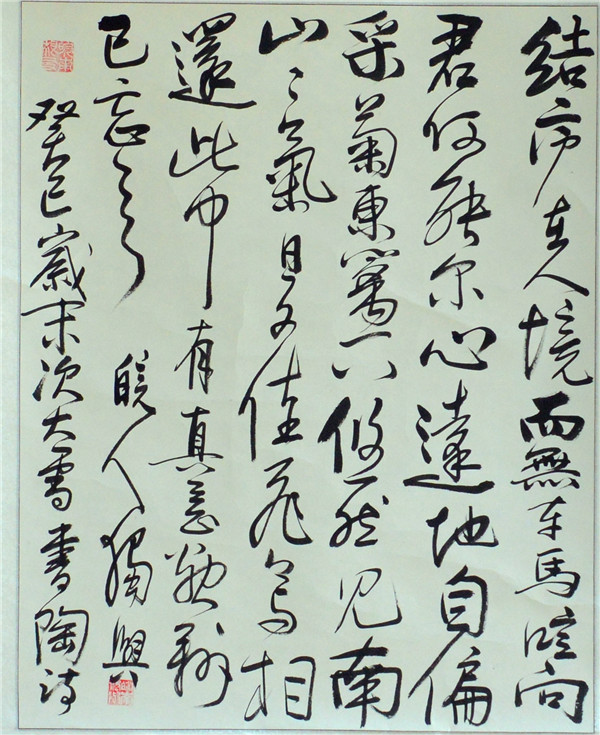 结庐在人境而無车馬喧问
君何能尔心遠地自偏
采菊東篱下悠然见南
山山氣日夕佳飛鸟相
還此中有真意欲辨
已忘言 皖人獨興
癸巳歲末次大雪書陶诗